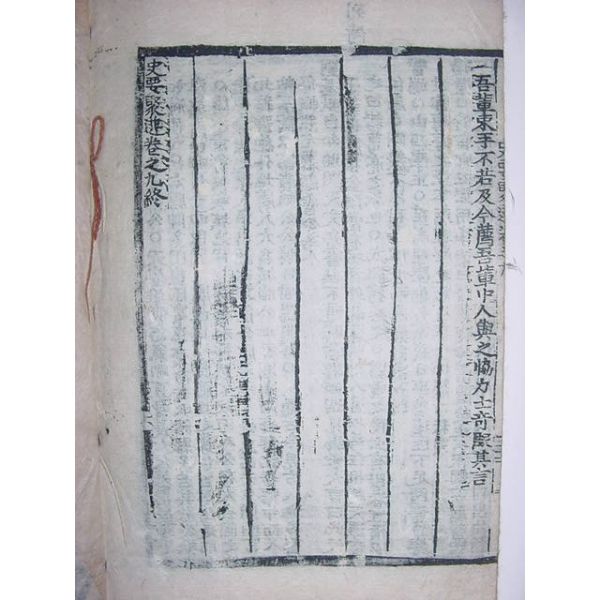 一吾輩束手不若及今薦吾輩中人與之協力士奇聚其言
史要聚選卷之九終